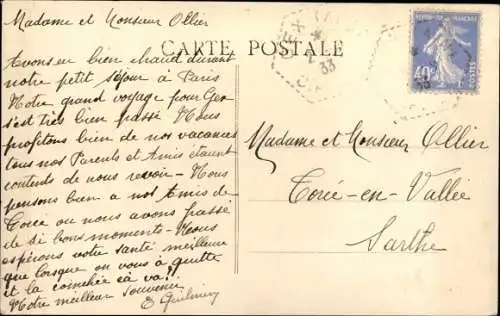 Madame et Monsieur Ollier
Avons eu bien chaud durant
notre petit séjour à Paris
Notre grand voyage pour Gex
s'est très bien passé Nous
profitons bien de nos vacances
tous nos Parents et Amis étaient
contents de nous revoir - Nous
pensons bien a nos Amis de
Torcé ou nous avons passé
de si bons moments - Nous
espérons votre santé meilleure
que lorsque on vous à quitté
et la coinchée cà va?!
Notre meilleur souvenir
E
CARTE POSTALE
GEX
33
REPUBLIQUE FRANCAISE
40c
POSTES
Madame et Monsieur Ollier
Torcé-en-Vallée
Sarthe